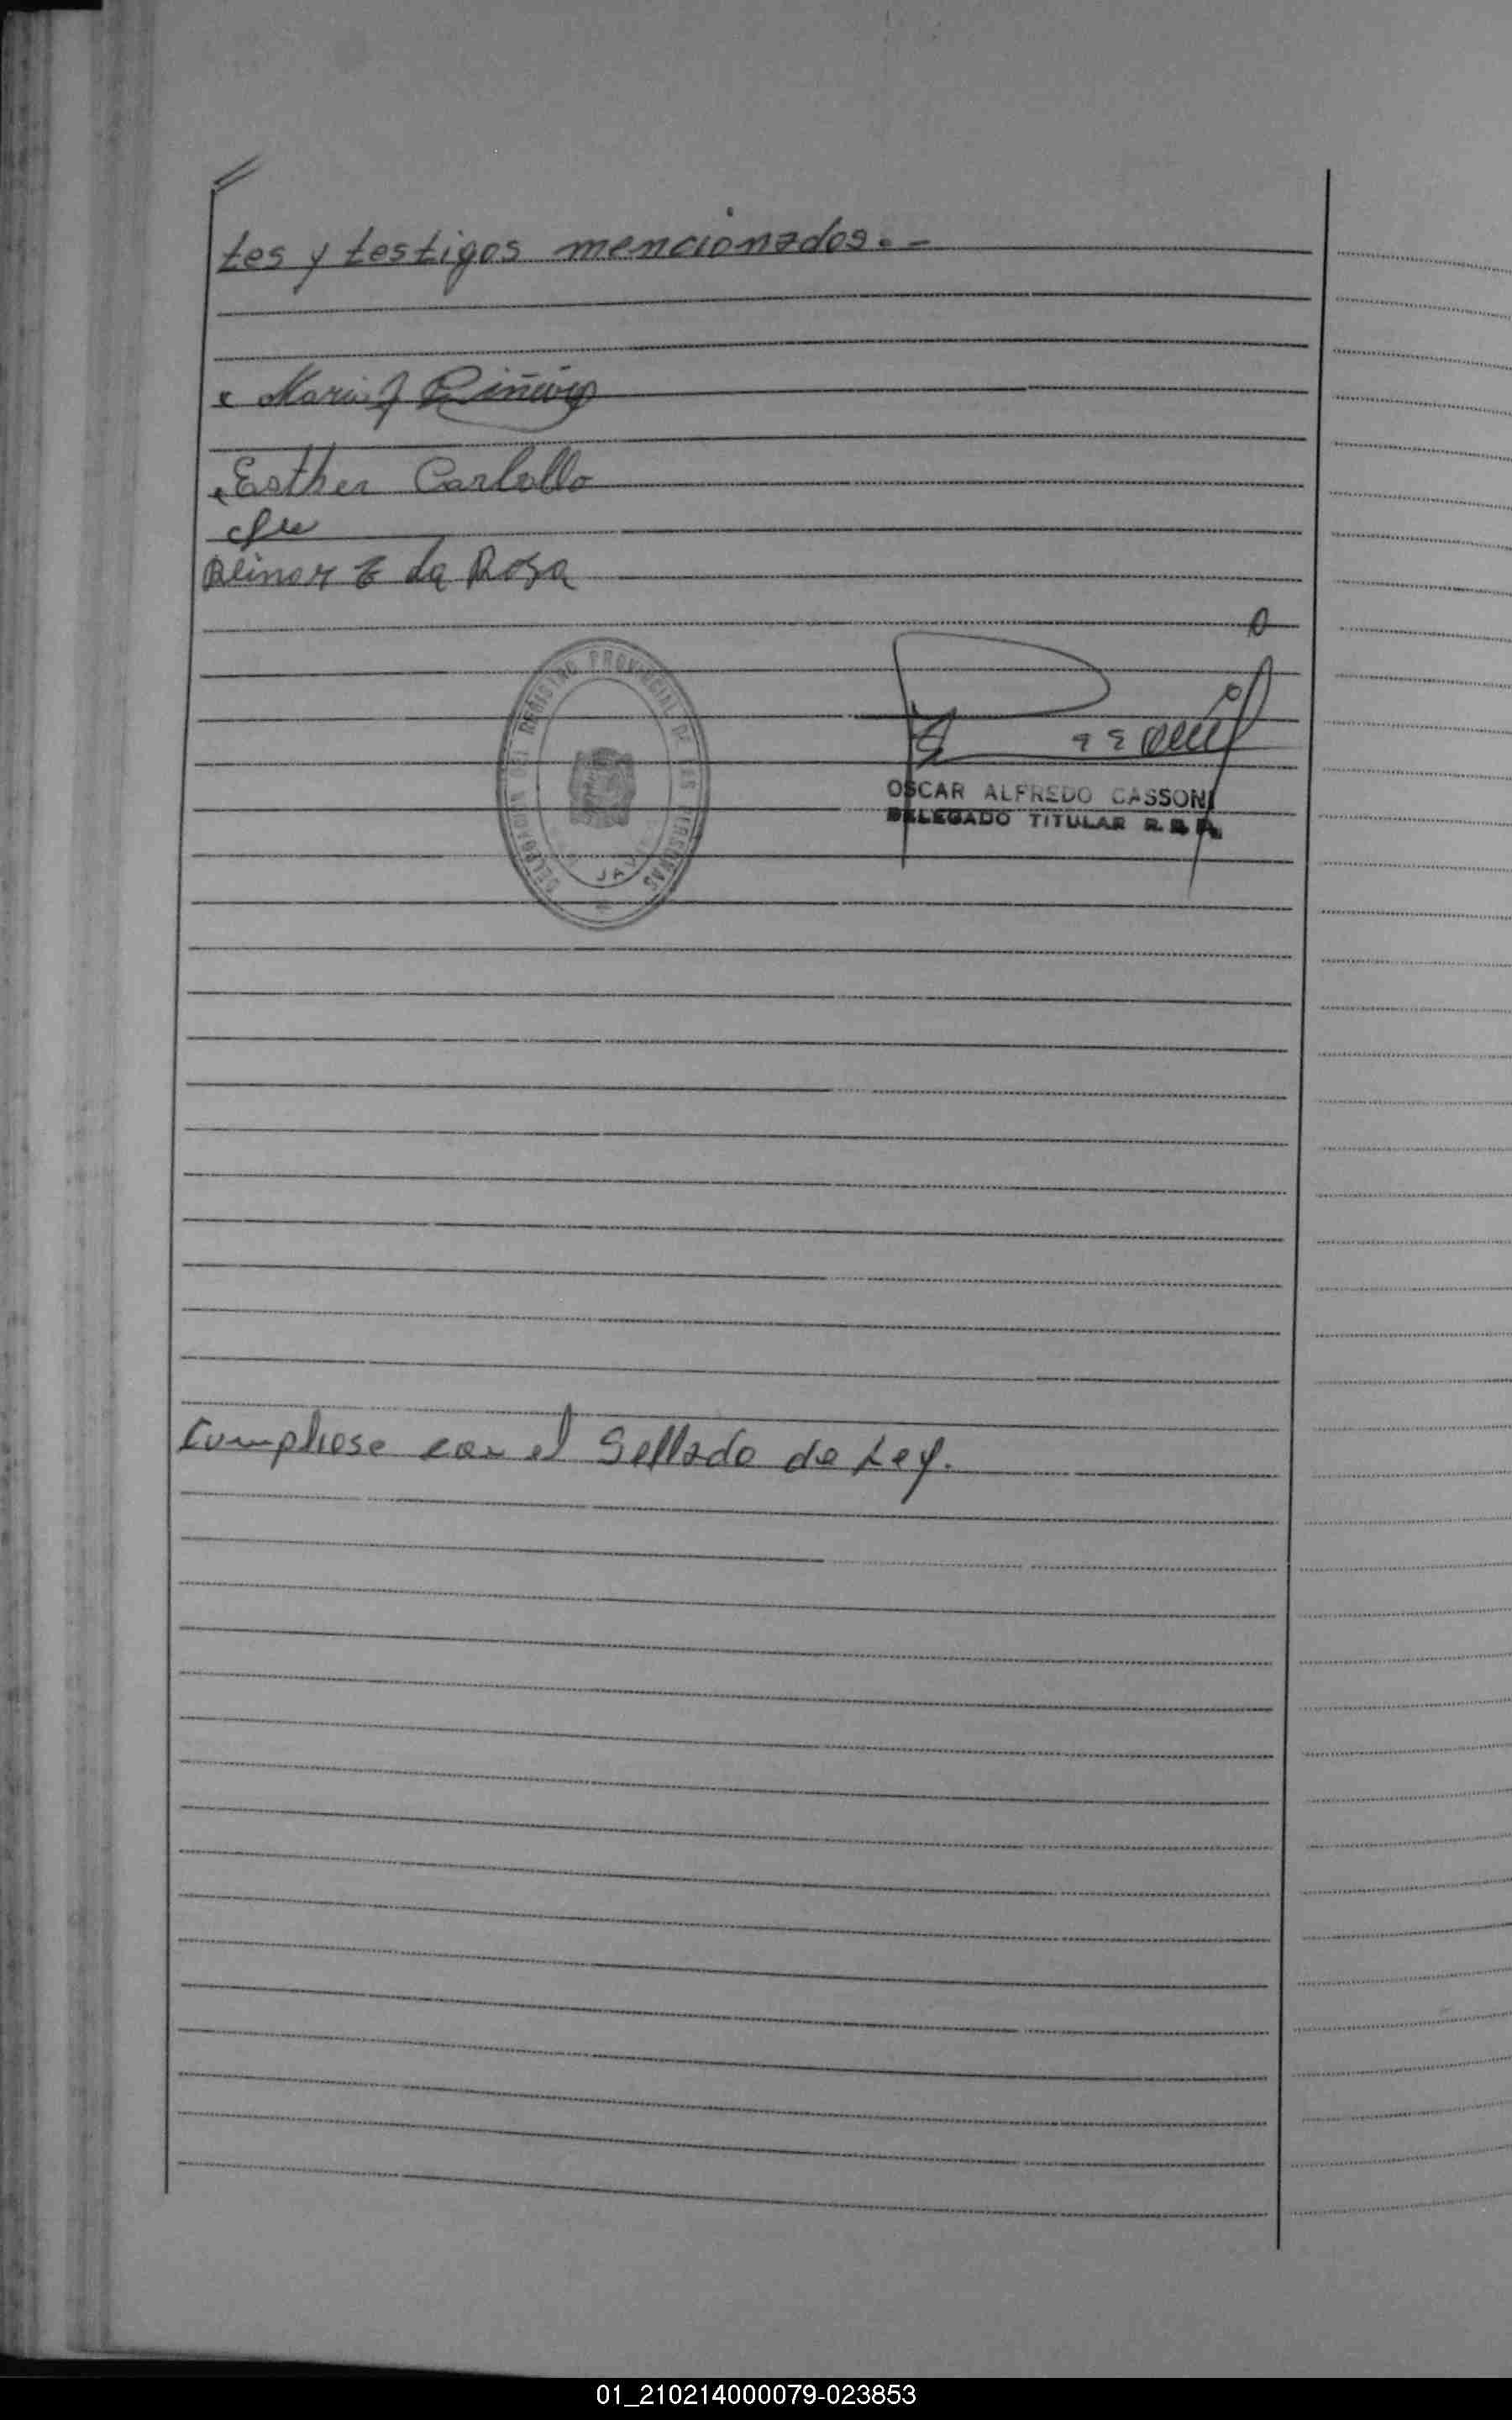 tes y testigos mencionados.-
Esther Carballo
Reinor E da Rosa
DELEGACION DEL REGISTRO PROVINCIAL DE LAS PERSONAS
OSCAR ALFREDO CASSONI
DELEGADO TITULAR R.P.P.
Cumpliose con el Sellado de Ley.
01_210214000079-023853